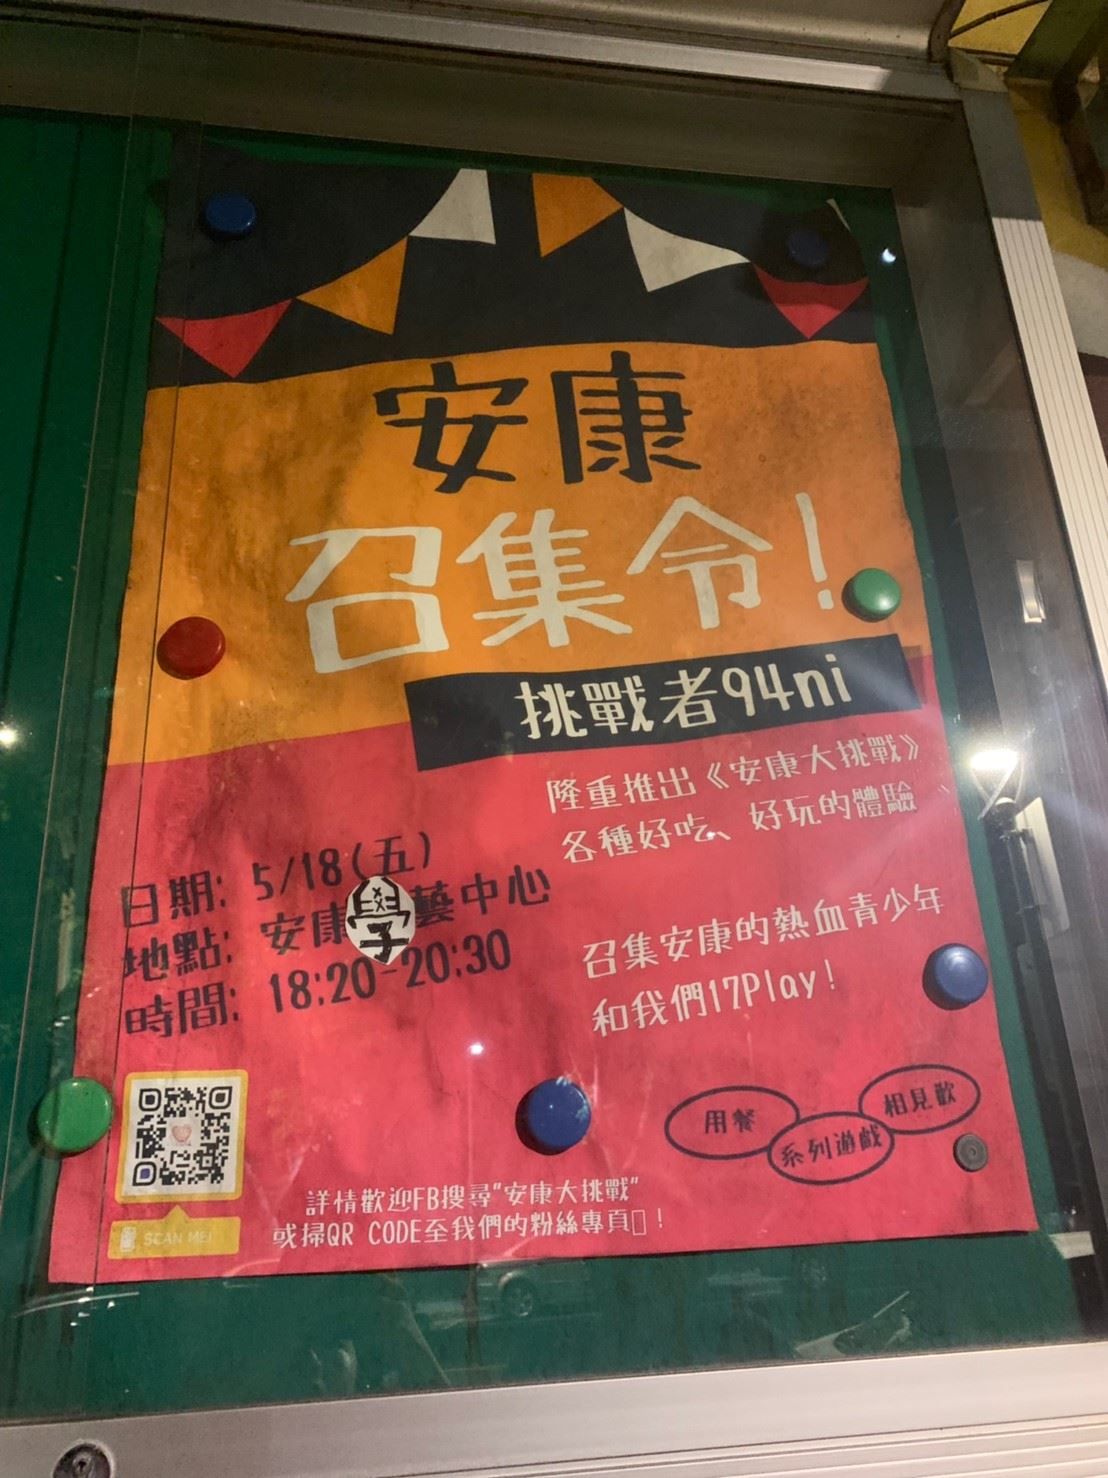 安康
召集令!
挑戰者94ni
隆重推出《安康大挑戰》
各種好吃、好玩的體驗
日期: 5/18(五)
地點: 安康學藝中心
時間: 18:20-20:30
召集安康的熱血青少年
和我們17Play!
用餐
系列遊戲
相見歡
SCAN ME!
詳情歡迎FB搜尋"安康大挑戰"
或掃QR CODE至我們的粉絲專頁□!